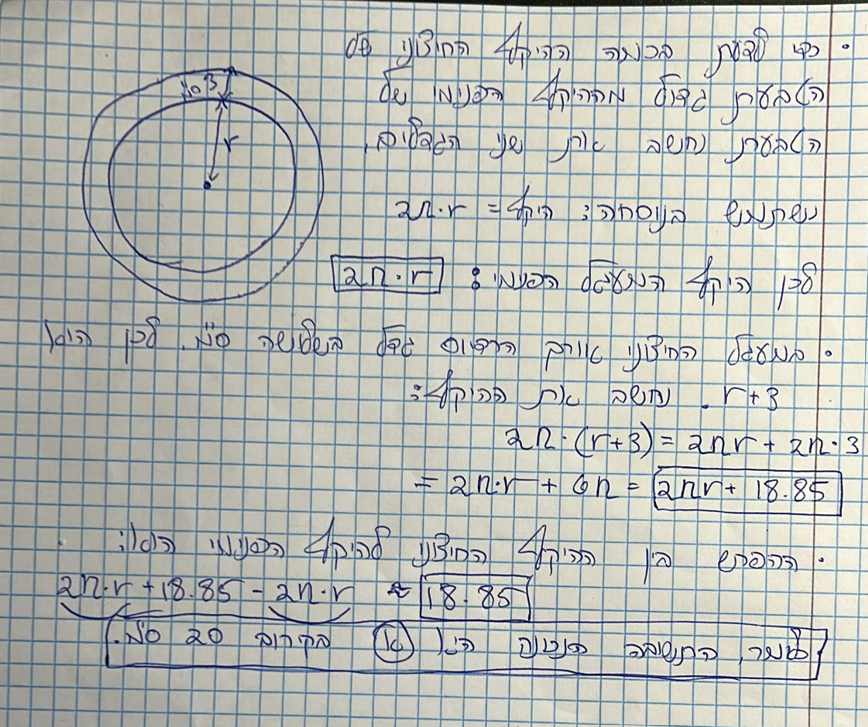 • כדי לדעת בכמה ההיקף החיצוני של
הטבעת גדול מההיקף הפנימי של
הטבעת נחשב את שני הגדלים.
נשתמש בנוסחה: היקף = 2π·r
לכן היקף המעגל הפנימי: 2π·r
• במעגל החיצוני אורך הרדיוס גדל בשלושה ס"מ. לכן הוא
r+3. נחשב את ההיקף:
2π·(r+3) = 2πr + 2π·3
= 2π·r + 6π = 2πr + 18.85
• ההפרש בין ההיקף החיצוני להיקף הפנימי הוא:
2π·r + 18.85 - 2π·r ≈ 18.85
כלומר, התשובה הנכונה היא בקירוב 20 ס"מ.
3 ס"מ
r